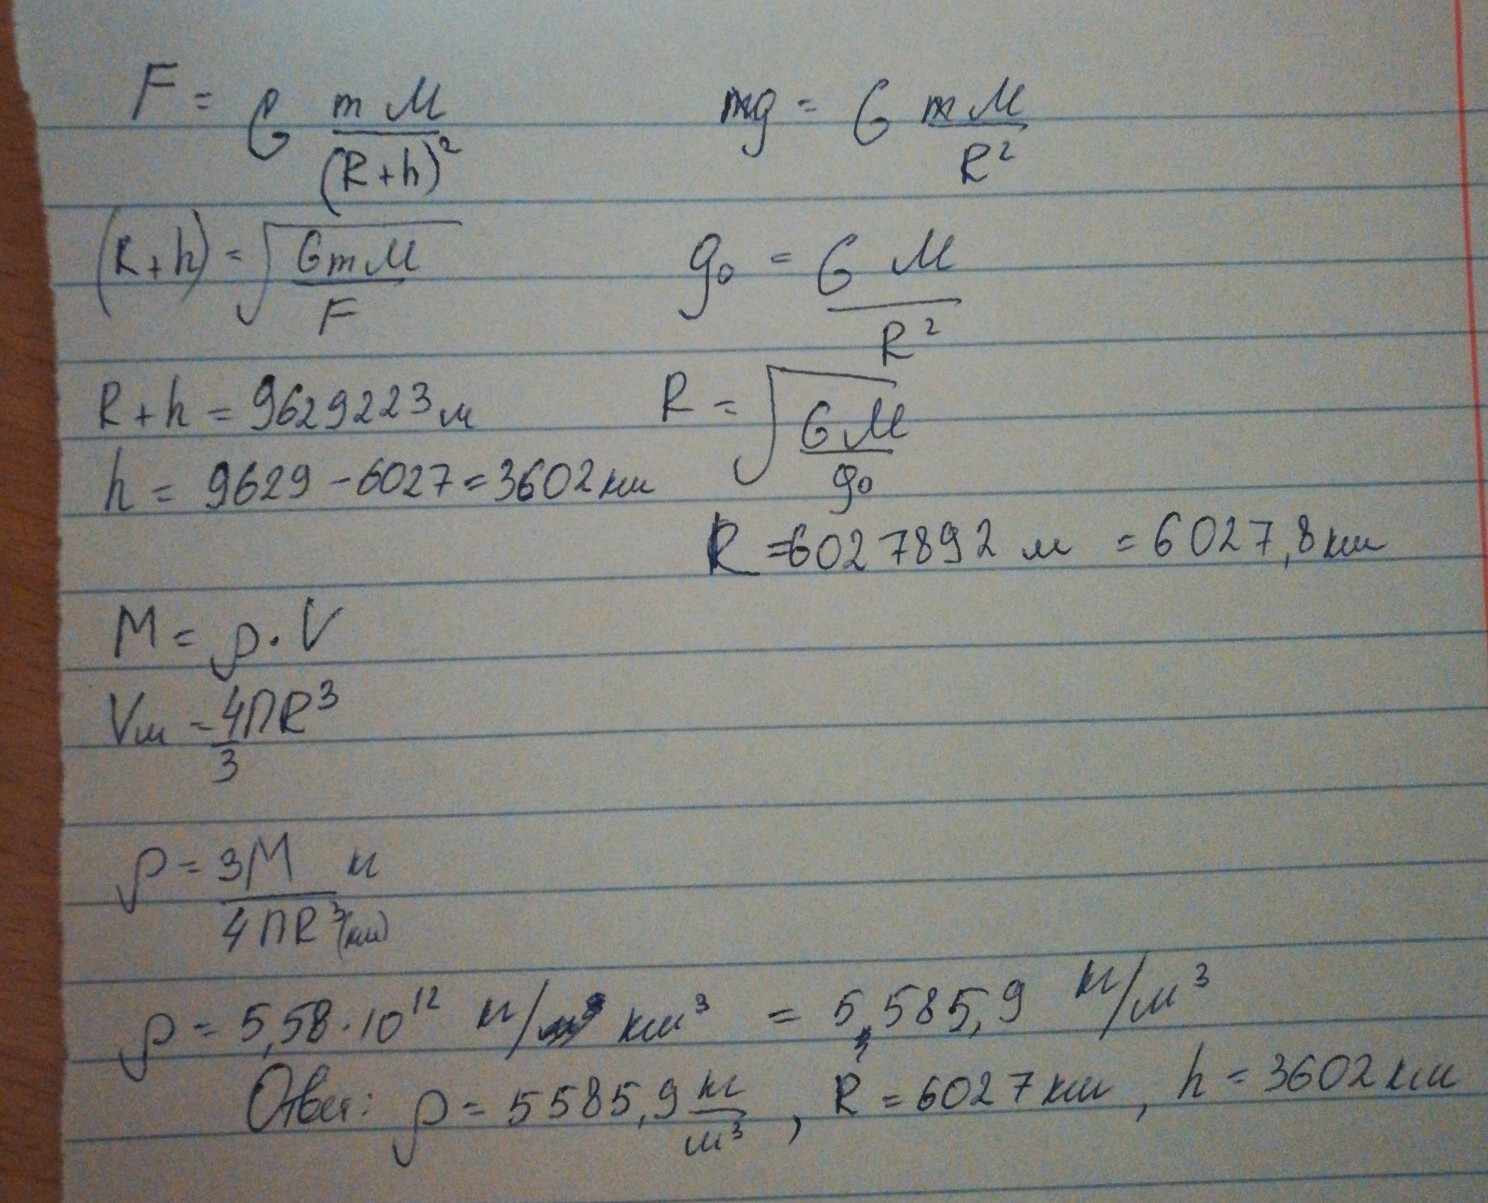 F = G mM/(R+h)²
mg = G mM/R²
(R+h) = √(GmM/F)
g₀ = G M/R²
R+h = 9629223 м
R = √(GM/g₀)
h = 9629 - 6027 = 3602 км
R = 6027892 м = 6027,8 км
M = ρ · V
Vш = 4ПR³/3
ρ = 3M кг / 4ПR³(км)
ρ = 5,58 · 10¹² кг/км³ = 5585,9 кг/м³
Ответ: ρ = 5585,9 кг/м³, R = 6027 км, h = 3602 км